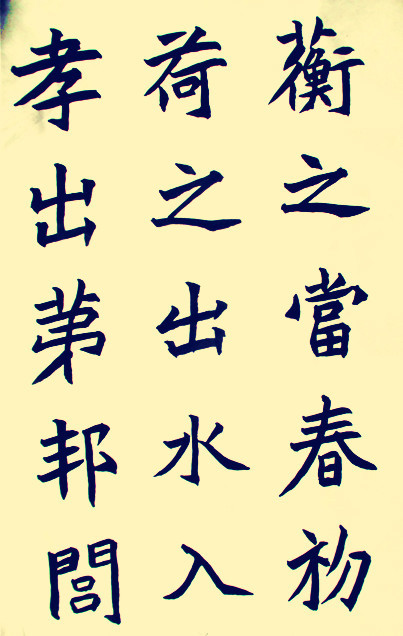 蘅之當春初
荷之出水入
孝出苐邦閭